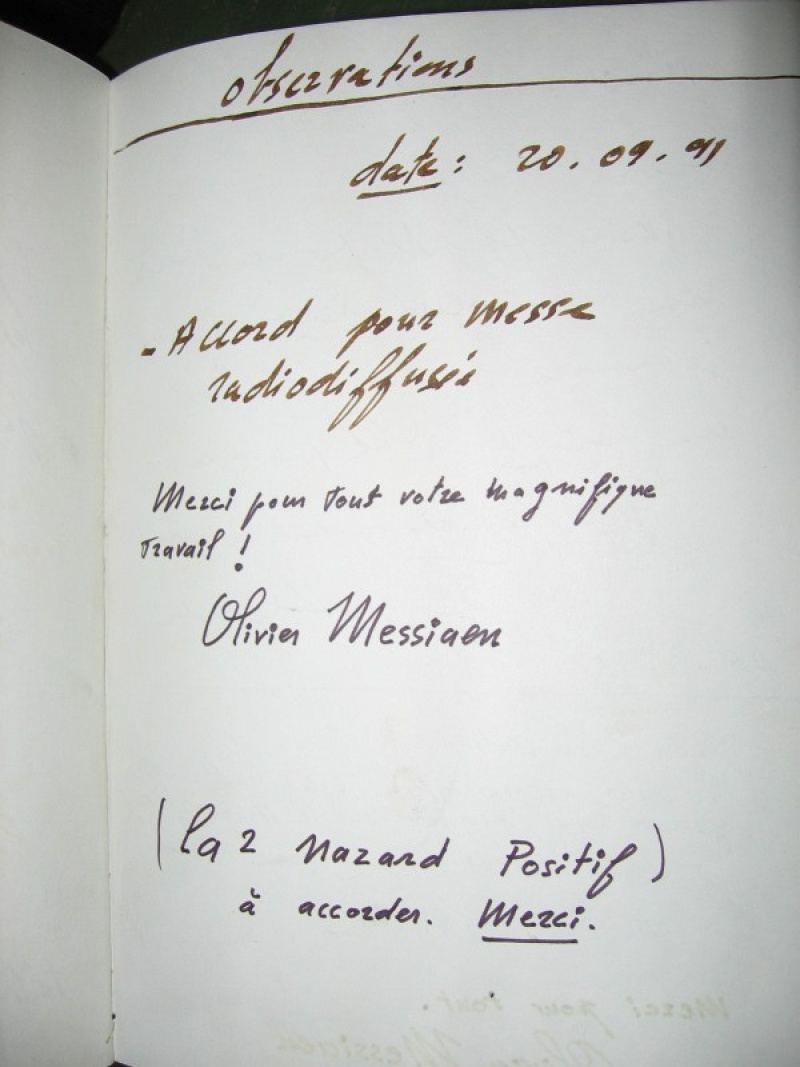 observations
date : 20. 09. 91
- Accord pour messe
radiodiffusée
Merci pour tout votre magnifique
travail !
Olivier Messiaen
(la 2 nazard Positif)
à accorder. Merci.
Merci pour tout.
Messiaen